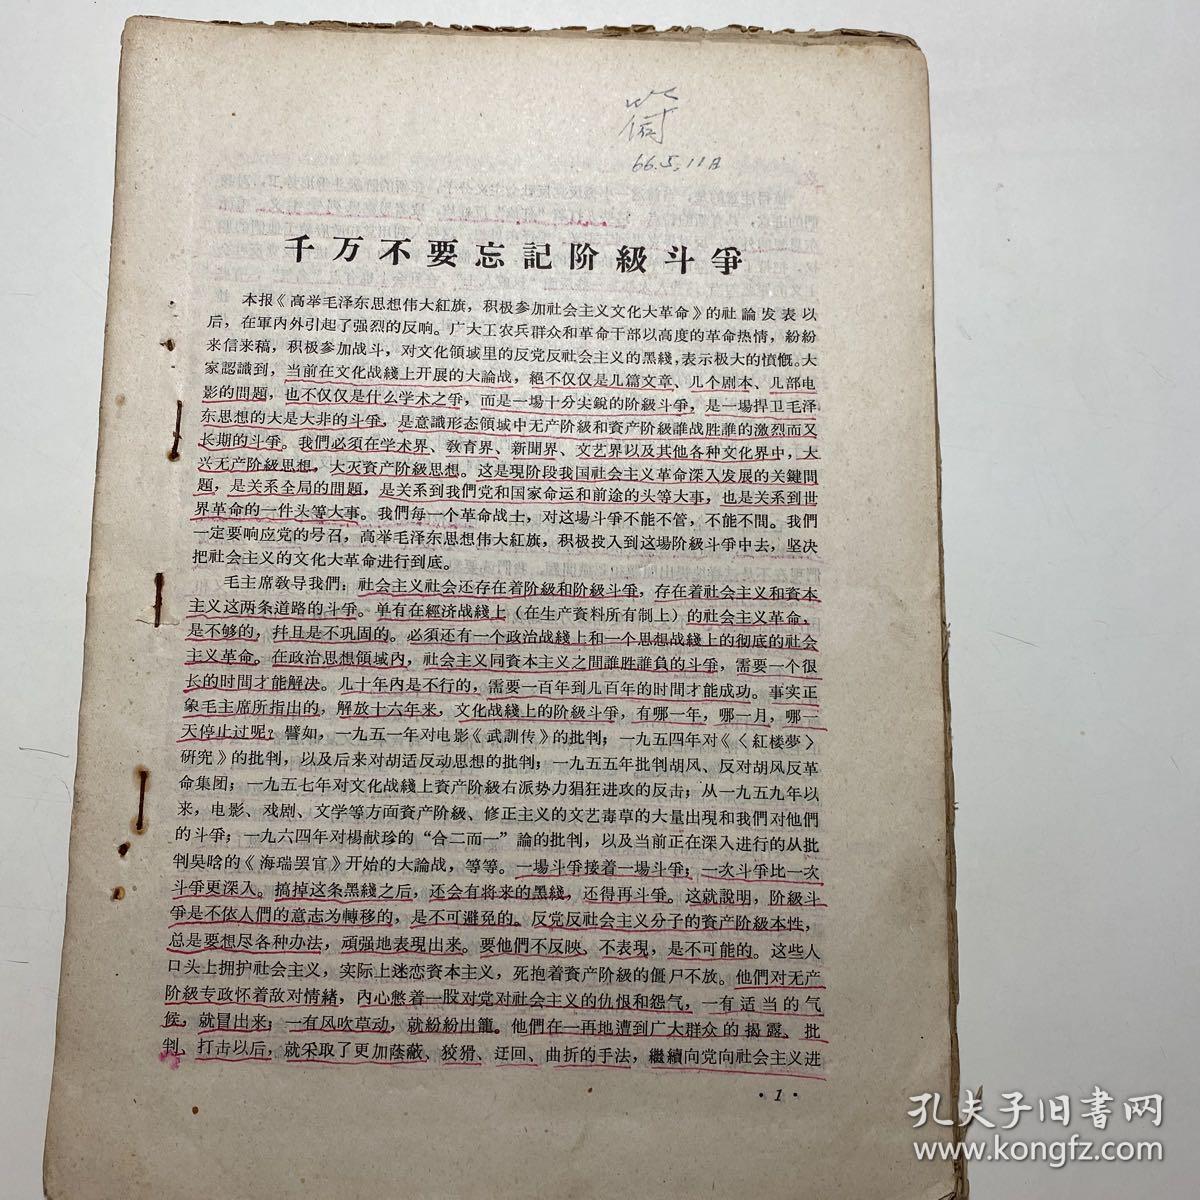 66.5.11日
千万不要忘記阶級斗爭
本报《高举毛泽东思想伟大紅旗，积极参加社会主义文化大革命》的社論发表以
后，在軍内外引起了强烈的反响。广大工农兵群众和革命干部以高度的革命热情，紛紛
来信来稿，积极参加战斗，对文化领域里的反党反社会主义的黑綫，表示极大的憤慨。大
家認識到，当前在文化战綫上开展的大論战，絕不仅仅是几篇文章、几个剧本、几部电
影的問題，也不仅仅是什么学术之爭，而是一場十分尖銳的阶級斗爭，是一場捍卫毛泽
东思想的大是大非的斗爭，是意識形态領域中无产阶級和資产阶級誰战胜誰的激烈而又
长期的斗爭。我們必須在学术界、敎育界、新聞界、文艺界以及其他各种文化界中，大
兴无产阶級思想，大灭資产阶級思想。这是現阶段我国社会主义革命深入发展的关鍵問
題，是关系全局的問題，是关系到我們党和国家命运和前途的头等大事，也是关系到世
界革命的一件头等大事。我們每一个革命战士，对这場斗爭不能不管，不能不問。我們
一定要响应党的号召，高举毛泽东思想伟大紅旗，积极投入到这場阶級斗爭中去，坚决
把社会主义的文化大革命进行到底。
毛主席敎导我們：社会主义社会还存在着阶級和阶級斗爭，存在着社会主义和資本
主义这两条道路的斗爭。单有在經济战綫上（在生产資料所有制上）的社会主义革命，
是不够的，幷且是不巩固的。必須还有一个政治战綫上和一个思想战綫上的彻底的社会
主义革命。在政治思想領域內，社会主义同資本主义之間誰胜誰負的斗爭，需要一个很
长的时間才能解决。几十年內是不行的，需要一百年到几百年的时間才能成功。事实正
象毛主席所指出的，解放十六年来，文化战綫上的阶級斗爭，有哪一年，哪一月，哪一
天停止过呢？譬如，一九五一年对电影《武訓传》的批判；一九五四年对《〈紅楼夢〉
研究》的批判，以及后来对胡适反动思想的批判；一九五五年批判胡风、反对胡风反革
命集团；一九五七年对文化战綫上資产阶級右派势力猖狂进攻的反击；从一九五九年以
来，电影、戏剧、文学等方面資产阶級、修正主义的文艺毒草的大量出現和我們对他們
的斗爭；一九六四年对楊献珍的“合二而一”論的批判，以及当前正在深入进行的从批
判吳晗的《海瑞罢官》开始的大論战，等等。一場斗爭接着一場斗爭；一次斗爭比一次
斗爭更深入。搞掉这条黑綫之后，还会有将来的黑綫，还得再斗爭。这就說明，阶級斗
爭是不依人們的意志为轉移的，是不可避免的。反党反社会主义分子的資产阶級本性，
总是要想尽各种办法，頑强地表現出来。要他們不反映、不表現，是不可能的。这些人
口头上拥护社会主义，实际上迷恋資本主义，死抱着資产阶級的僵尸不放。他們对无产
阶級专政怀着敌对情緒，内心憋着一股对党对社会主义的仇恨和怨气，一有适当的气
候，就冒出来；一有风吹草动，就紛紛出籠。他們在一再地遭到广大群众的揭露、批
判、打击以后，就采取了更加蔭蔽、狡猾、迂回、曲折的手法，繼續向党向社会主义进
·1·
孔夫子旧書网
www.kongfz.com